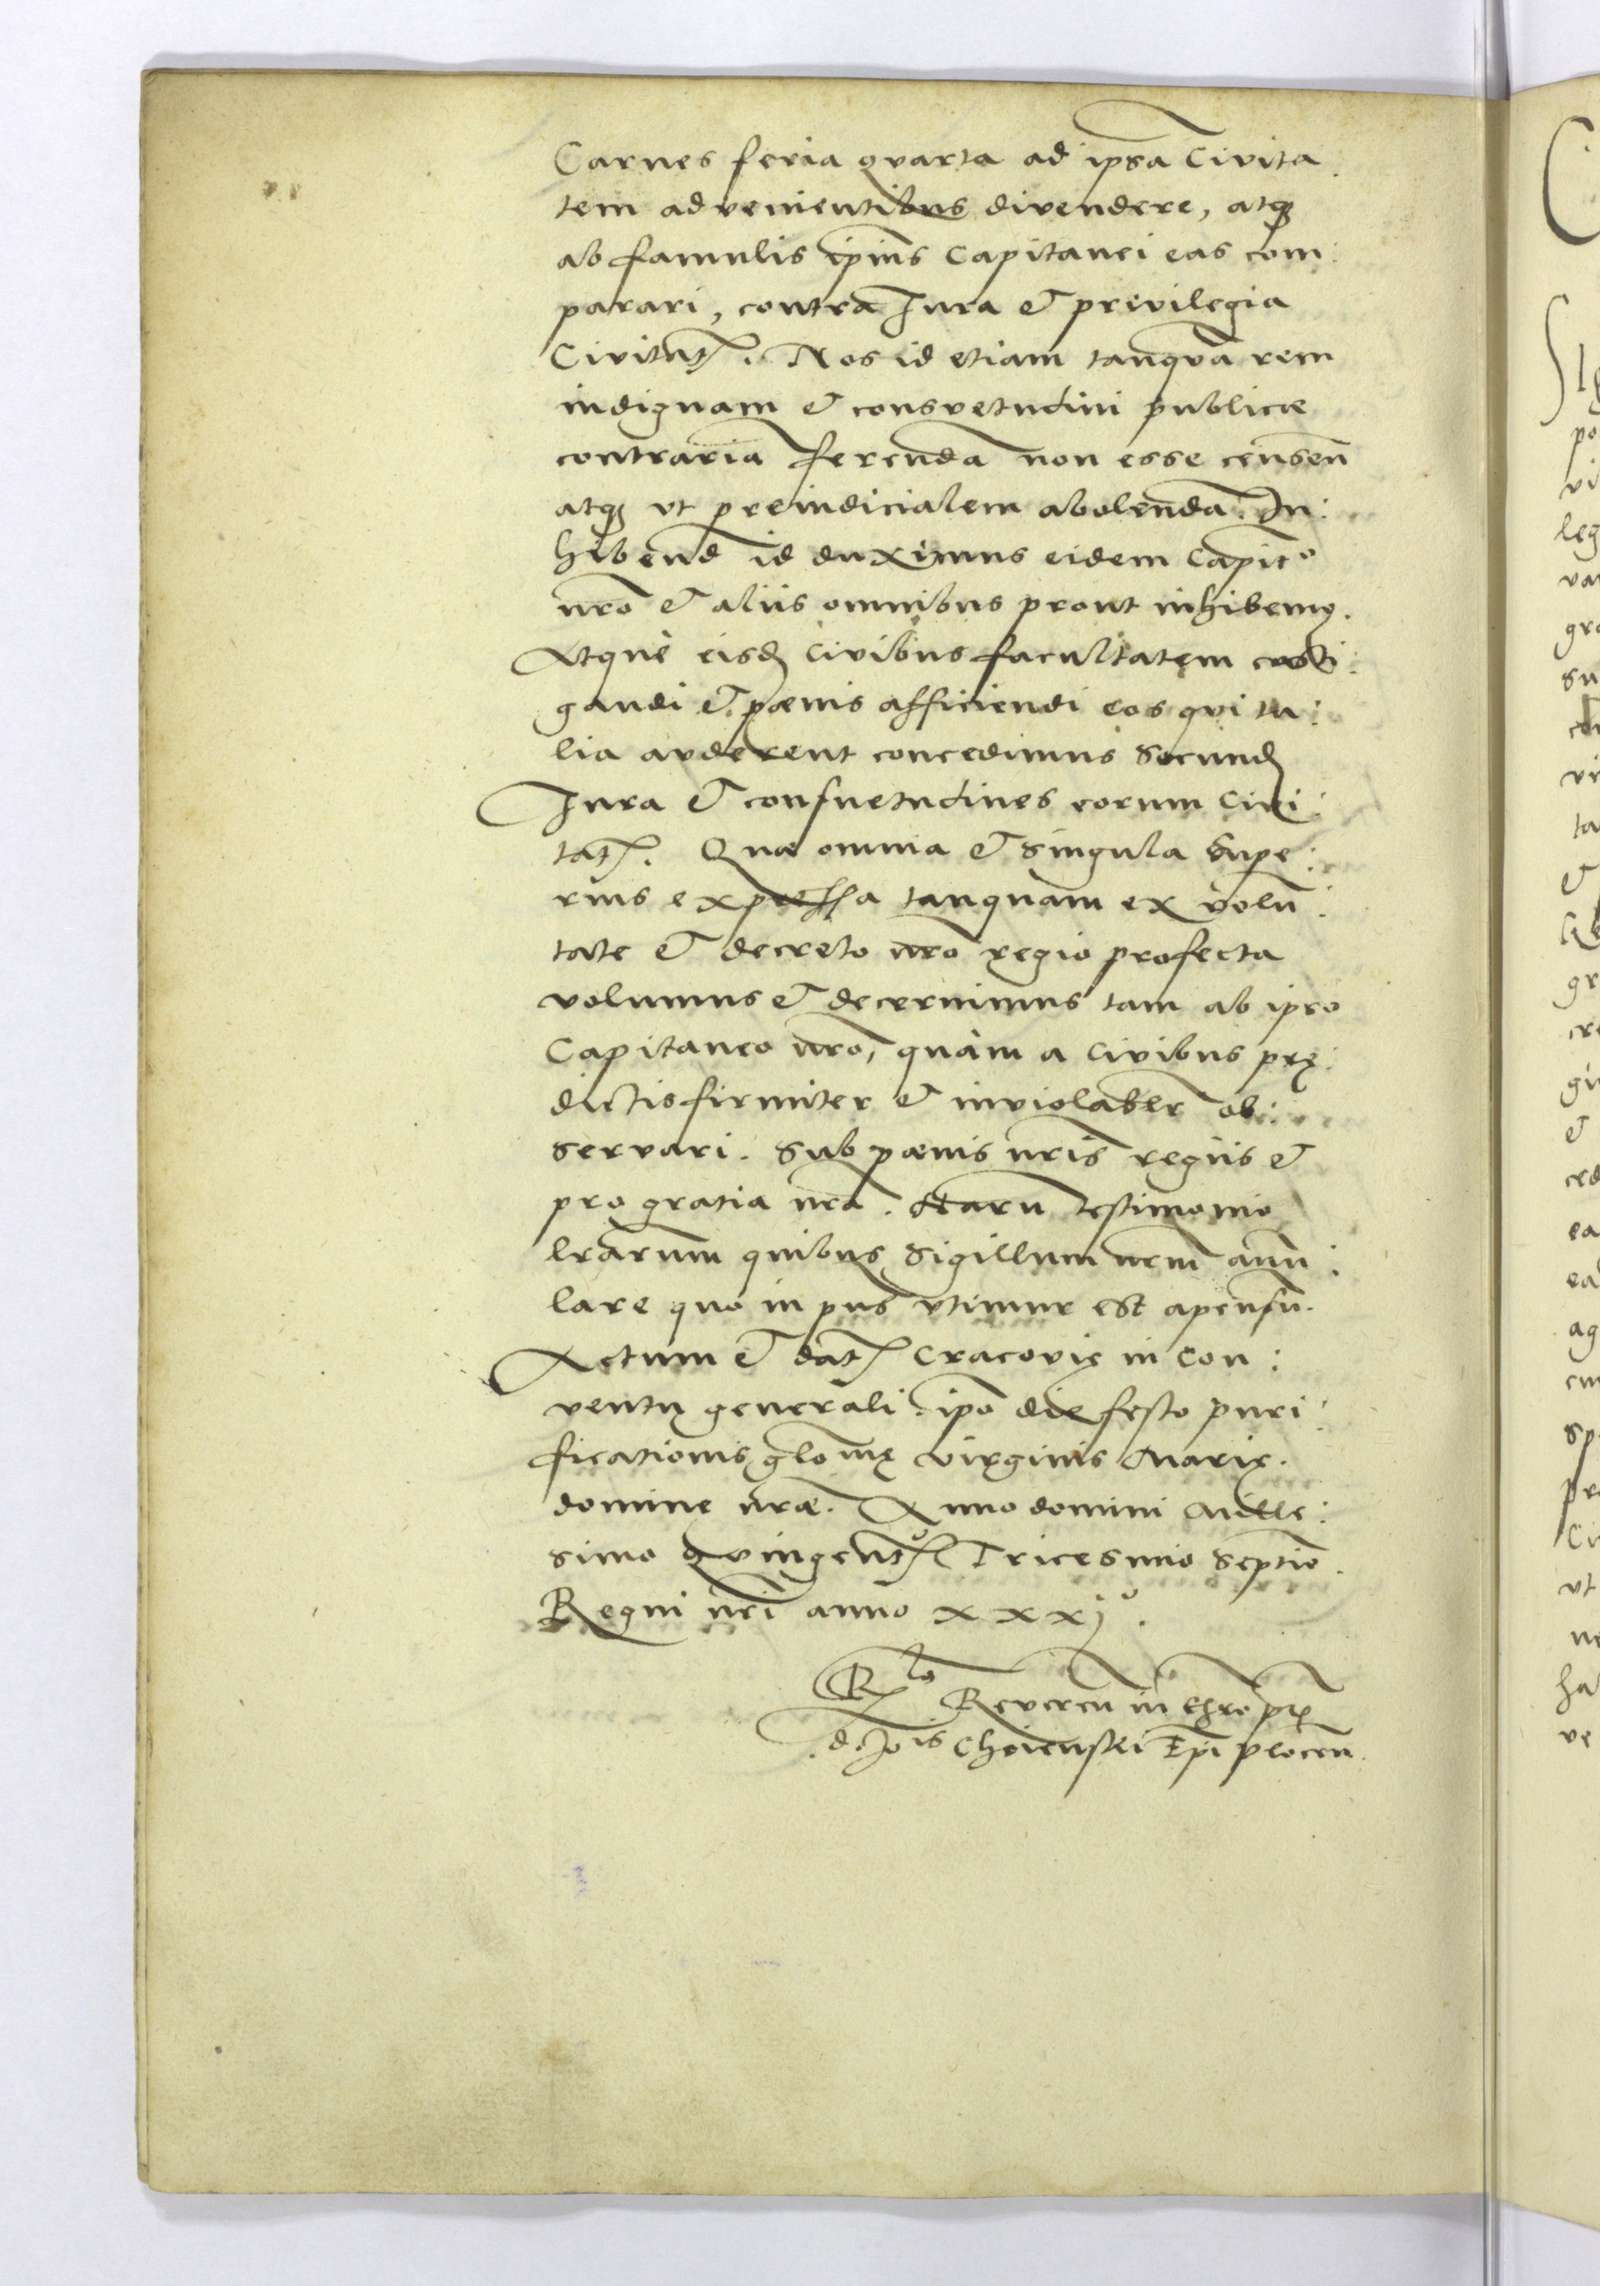 Carnes feria qvarta ad ipsā Civita
tem advenientibus divendere, atqꝫ
ab famulis ipius Capitanei eas com:
parari, contra Jura & previlegia
Civitatꝭ. Nos id etiam tanqvā rem
indignam & consvetudini publicæ
contrariā ferendā non esse censen̄
atqꝫ vt preiudicialem abolendā. In:
hibend̄ id duximus eidem Capitº
nr̄o & aliis omnibus prout inhibemꝯ.
Atque eisdꝫ civibus facultatem casti:
gandi & pœnis afficiendi eos qvi ta:
lia avderent concedimus Secundꝫ
Jura & consuetudines eorum Civi:
tatꝭ. Quæ omnia & singula supe:
rius expressa tanquam ex volū:
tate & decreto nr̄o regio profecta
volumus & decernimus tam ab ipso
Capitaneo nr̄o, quàm a Civibus prę:
dictis firmiter & inviolabilr̄ ob:
servari. Sub pœnis nr̄is regiis &
pro gratia nr̄a. Harū testimonio
lr̄arum quibus Sigillum nr̄m annu:
lare quo in pn̄s vtimur est apensū.
Actum & datꝭ Cracovię in Con:
ventu generali ipo die festo puri:
ficationis glo mę virginis Marię.
domine nr̄æ. Anno domini Mille:
simo qvingentº Tricesimo Septio.
Regni nr̄i anno xxxjº.
Rlo Reveren in chro pꝛ̄
d. Jois Choienski Epi plocen̄.